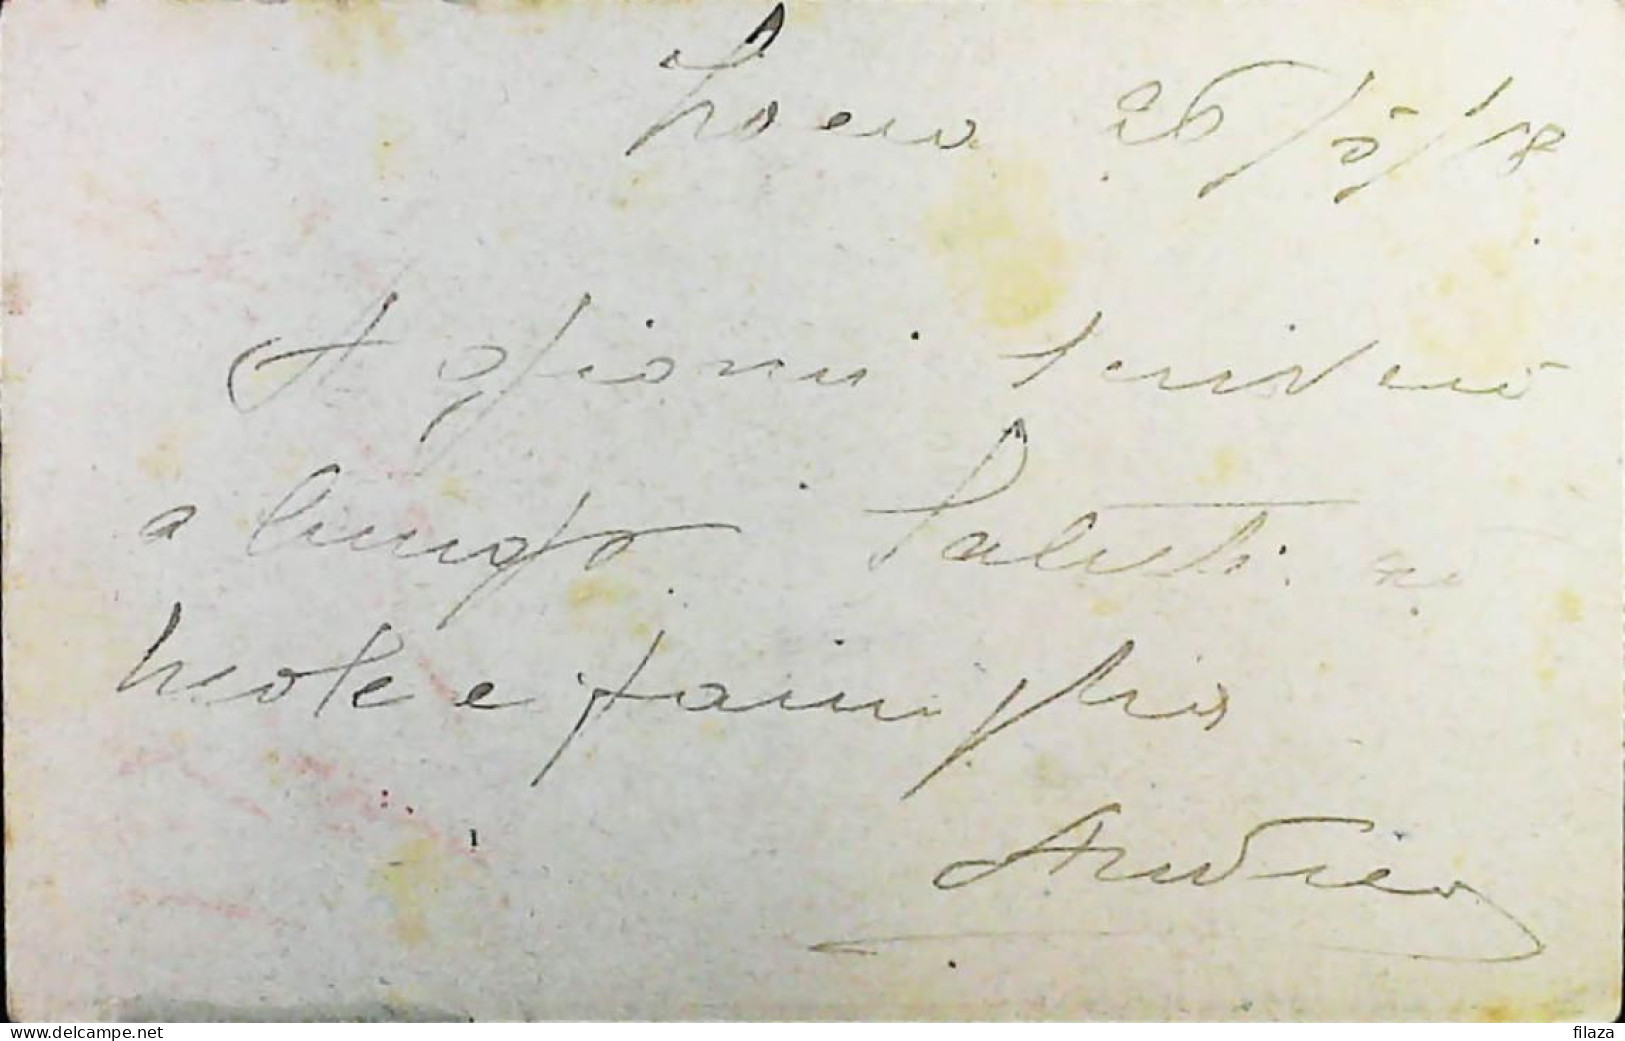 26/5/18
A giorni scriverò
a lungo. Saluti a
Nicole e famiglia
Andrea
www.delcampe.net
filaza